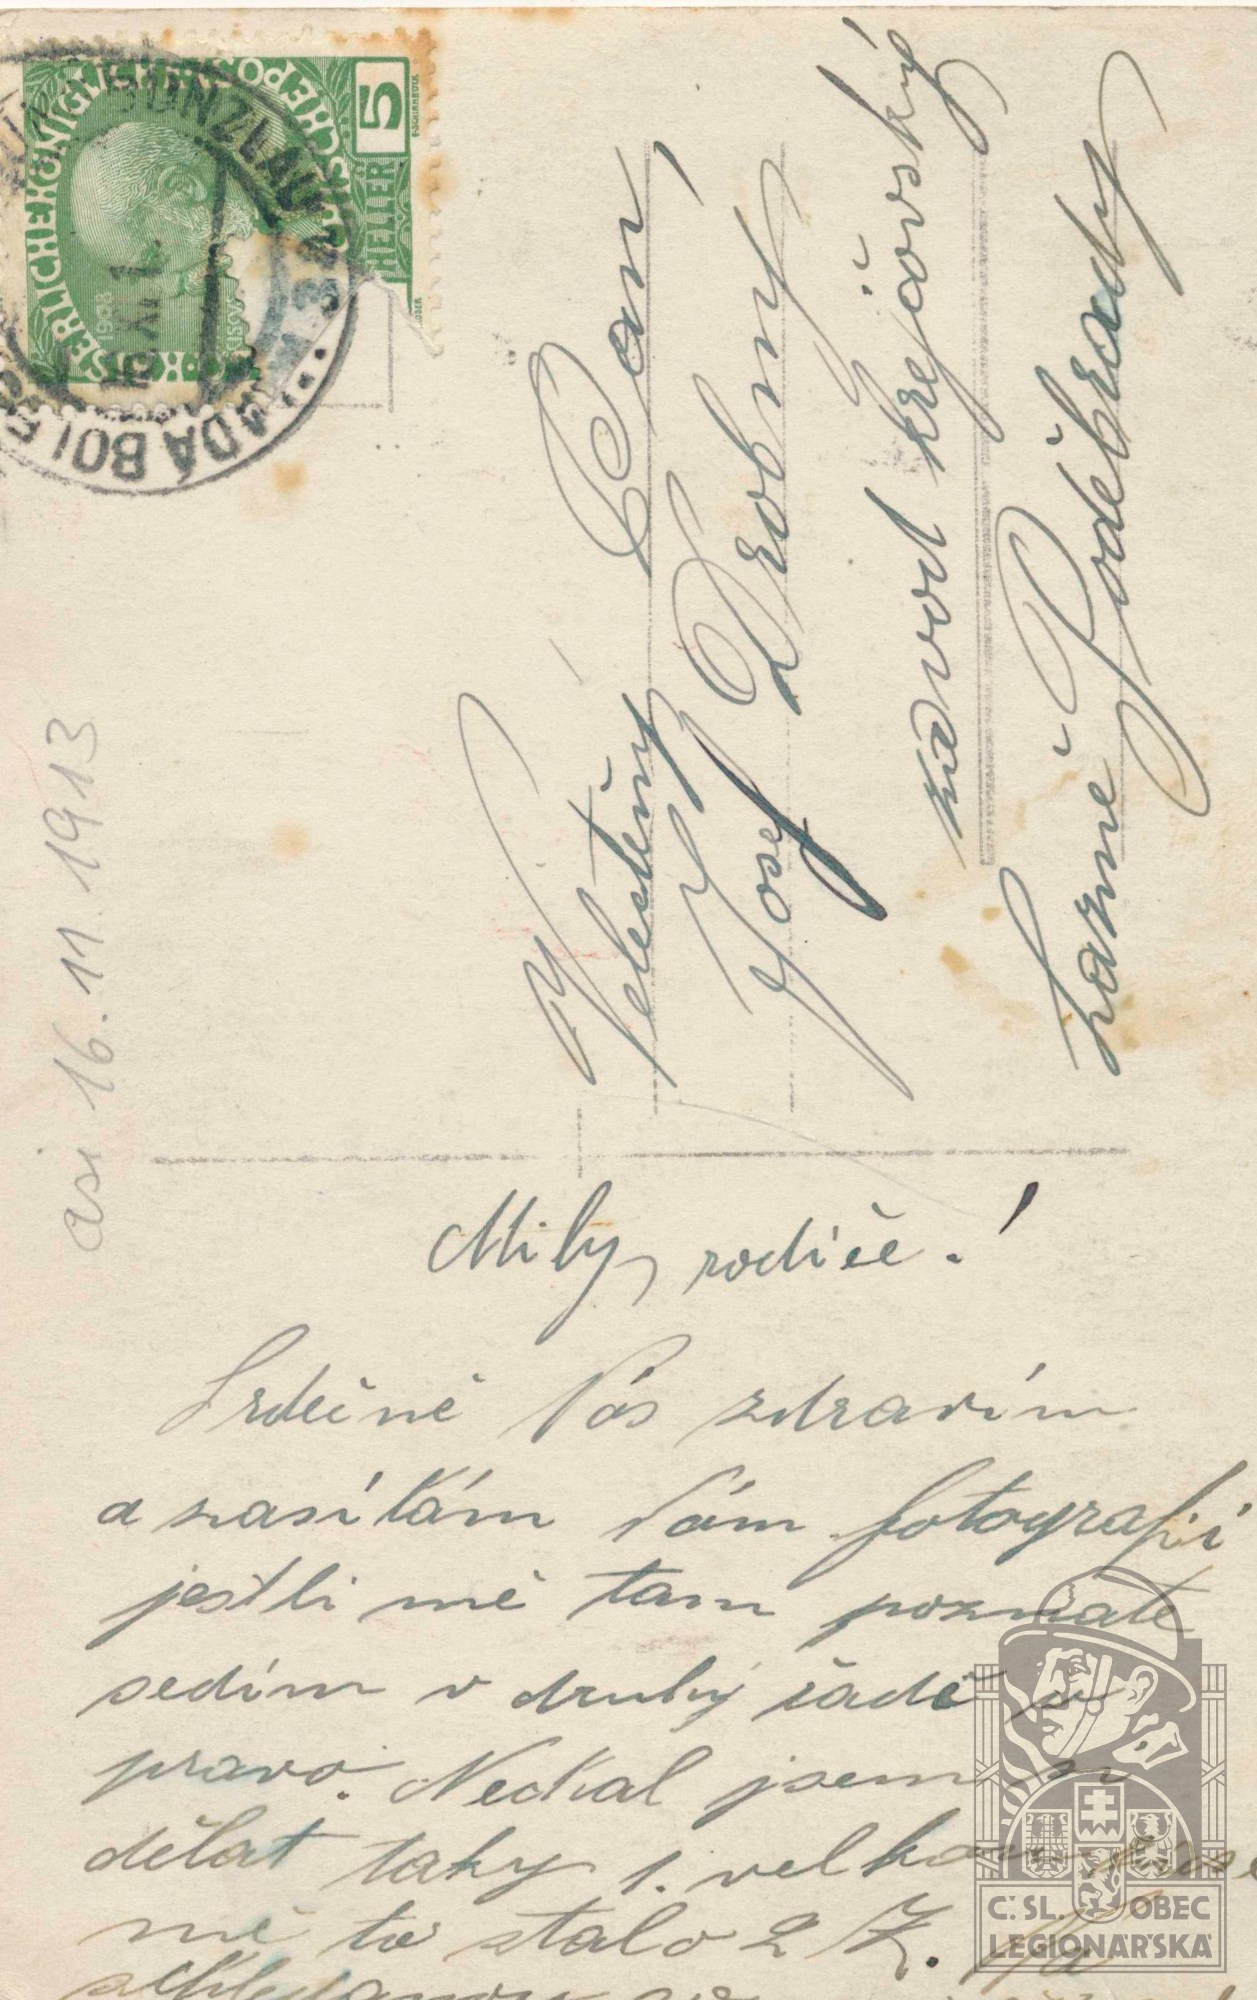 KAISERLICHE KÖNIGLICHE ÖSTERREICHISCHE POST
5
HELLER
1908
BUNZLAU
16 XI 1
MLADÁ BOLESLAV
asi 16. 11. 1913
Velectěný Pan
Josef Drobný
závod krejčovský
Lázně Poděbrady
Milý rodiče!
Srdečně Vás zdravím
a zasílám Vám fotografii
jestli mě tam poznáte
sedím v druhý řádě v
pravo. Nechal jsem si
dělat taky 1. velkou
mě to stálo 2 K. Na
shledanou
Č.SL. OBEC
LEGIONÁŘSKÁ